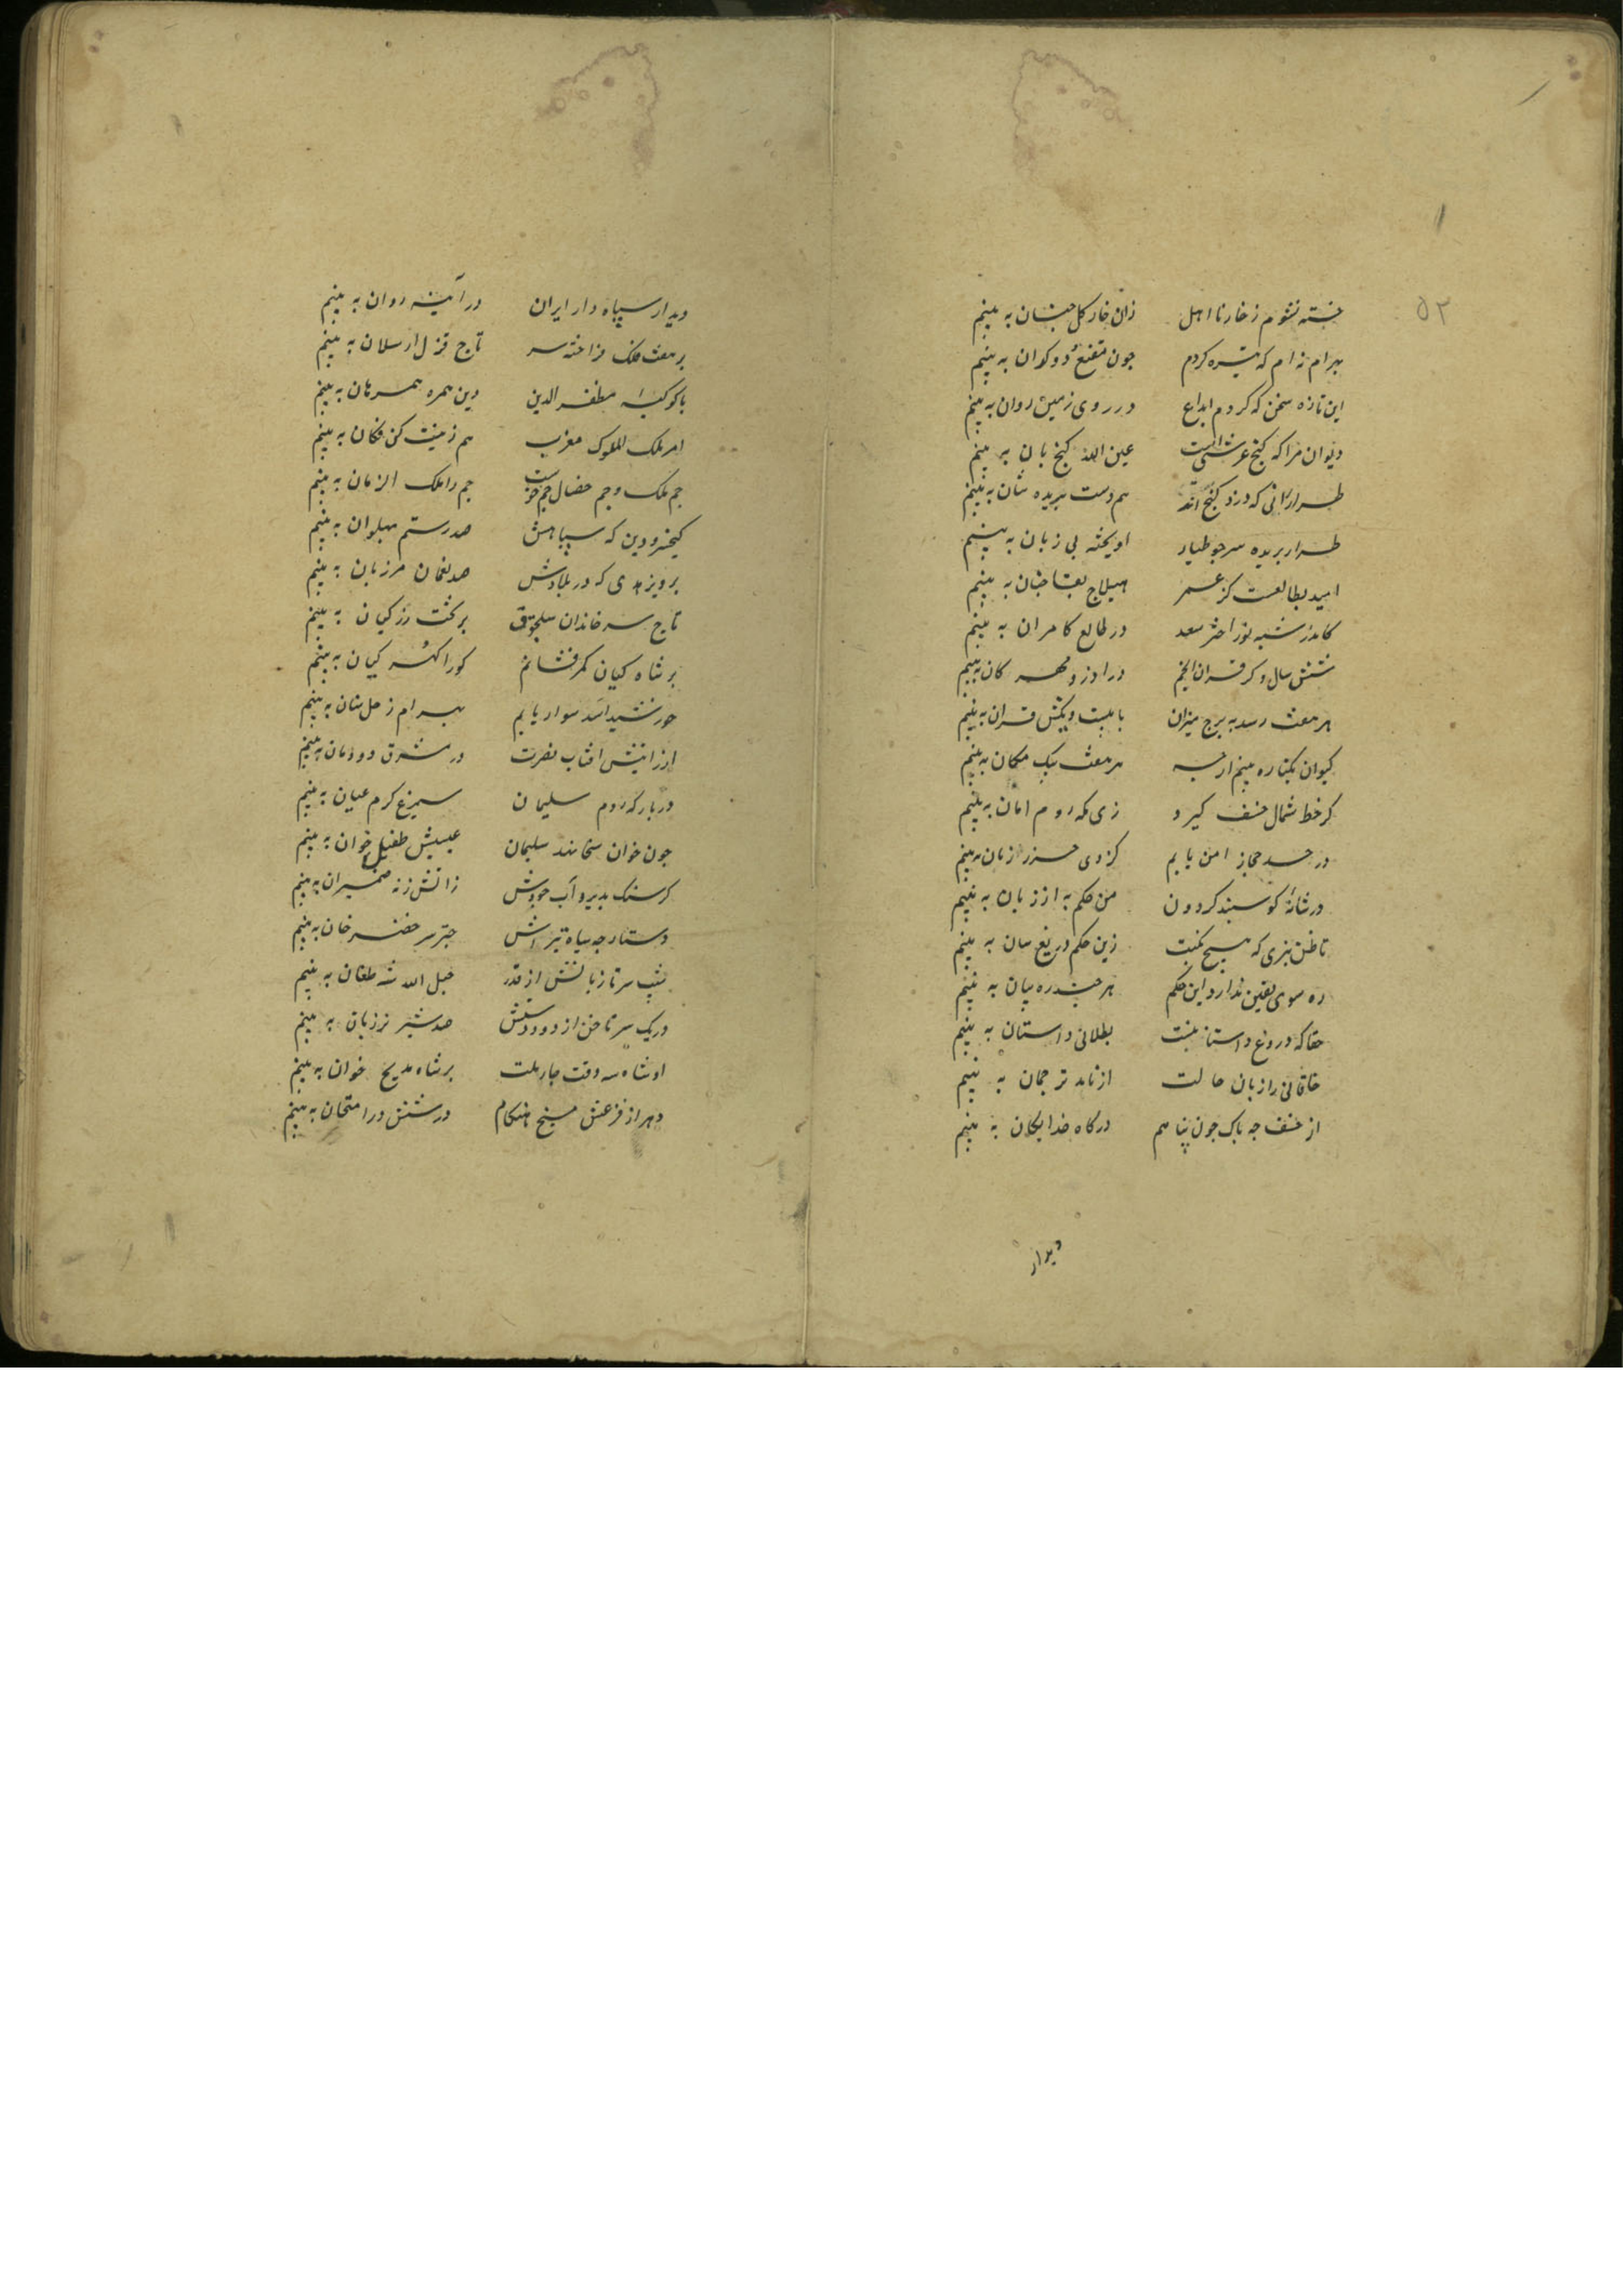 ۵۳
خسته نشوم ز خار نا اهل زان خار کل جنان به بینم
بهرام نه ام که تیره کردم چون مقنع و دوکدان به بینم
این تازه سخن که کردم ابداع در روی زمین روان به بینم
دیوان مرا که کنج عرشیست عین الله کنج بان به بینم
طراری که دزد کنج اند هم دست بریده شان به بینم
طرار بریده سر جو طیار اویخته بی زبان به بینم
امید بطالعست کز عمر هیلاج بقا جنان به بینم
کاندر شبه نور اختر سعد در طالع کامران به بینم
شش سال دکر قران انجم در اذر و مهرکان به بینم
هر هفت رسد به برج میزان با بیست ویکش قران به بینم
کیوان بکناره بینم ارجه هر هفت بیک مکان به بینم
کر خط شمال خسف کیرد زی مکه روم امان به بینم
در حد حجاز امن یابم کز وی حزر زمان به بینم
در شانهٔ کوسبند کردون من حکم به از زبان به بینم
تا ظن نبری که هیج نکبت زین حکم دریغ سان به بینم
ره سوی یقین ندارد این حکم هر جند ره بیان به بینم
حقا که دروغ داستانیست بطلانی داستان به بینم
خاقانی را زبان حالت از نامد ترجمان به بینم
از خسف جه باک جون بناهم درکاه خدایکان به بینم
دیدار
دیدار سپاه دار ایران در آینه روان به بینم
بر هفت فلک فراخته سر تاج قزل ارسلان به بینم
با کوکبهٔ مظفر الدین دین همره همرهان به بینم
امر ملک الملوک مغرب هم زینت کن فکان به بینم
جم ملک و جم خصال جم خوست جم را ملک الزمان به بینم
کیخسرو دین که سپاهش صد رستم پهلوان به بینم
برویز هدی که در بلادش صد نعمان مرزبان به بینم
تاج سر خاندان سلجوق بر تخت زر کیان به بینم
بر شاه کیان کمر فشانم کو را کهر کیان به بینم
خورشید اسد سوار یابم بهرام زحل سنان به بینم
از رانیش افتاب نصرت در مشرق دودمان به بینم
در بارکه دوم سلیمان سیمرغ کرم عیان به بینم
جون خوان سخا نهد سلیمان عیسیش طفیل خوان به بینم
کر سنک بذیرد آب جودش ز اتش زنه ضیمران به بینم
دستارجه سیاه نیزه اش جتر سر خضر خان به بینم
شیب سر تازیانش از قدر حبل الله شه طغان به بینم
در یک سر ناخن از دو دستش صد شیر نر ژیان به بینم
او شاه سه وقت جار ملت بر شاه مدیح خوان به بینم
دهر از فزعش مسیخ هنکام در شش در امتحان به بینم